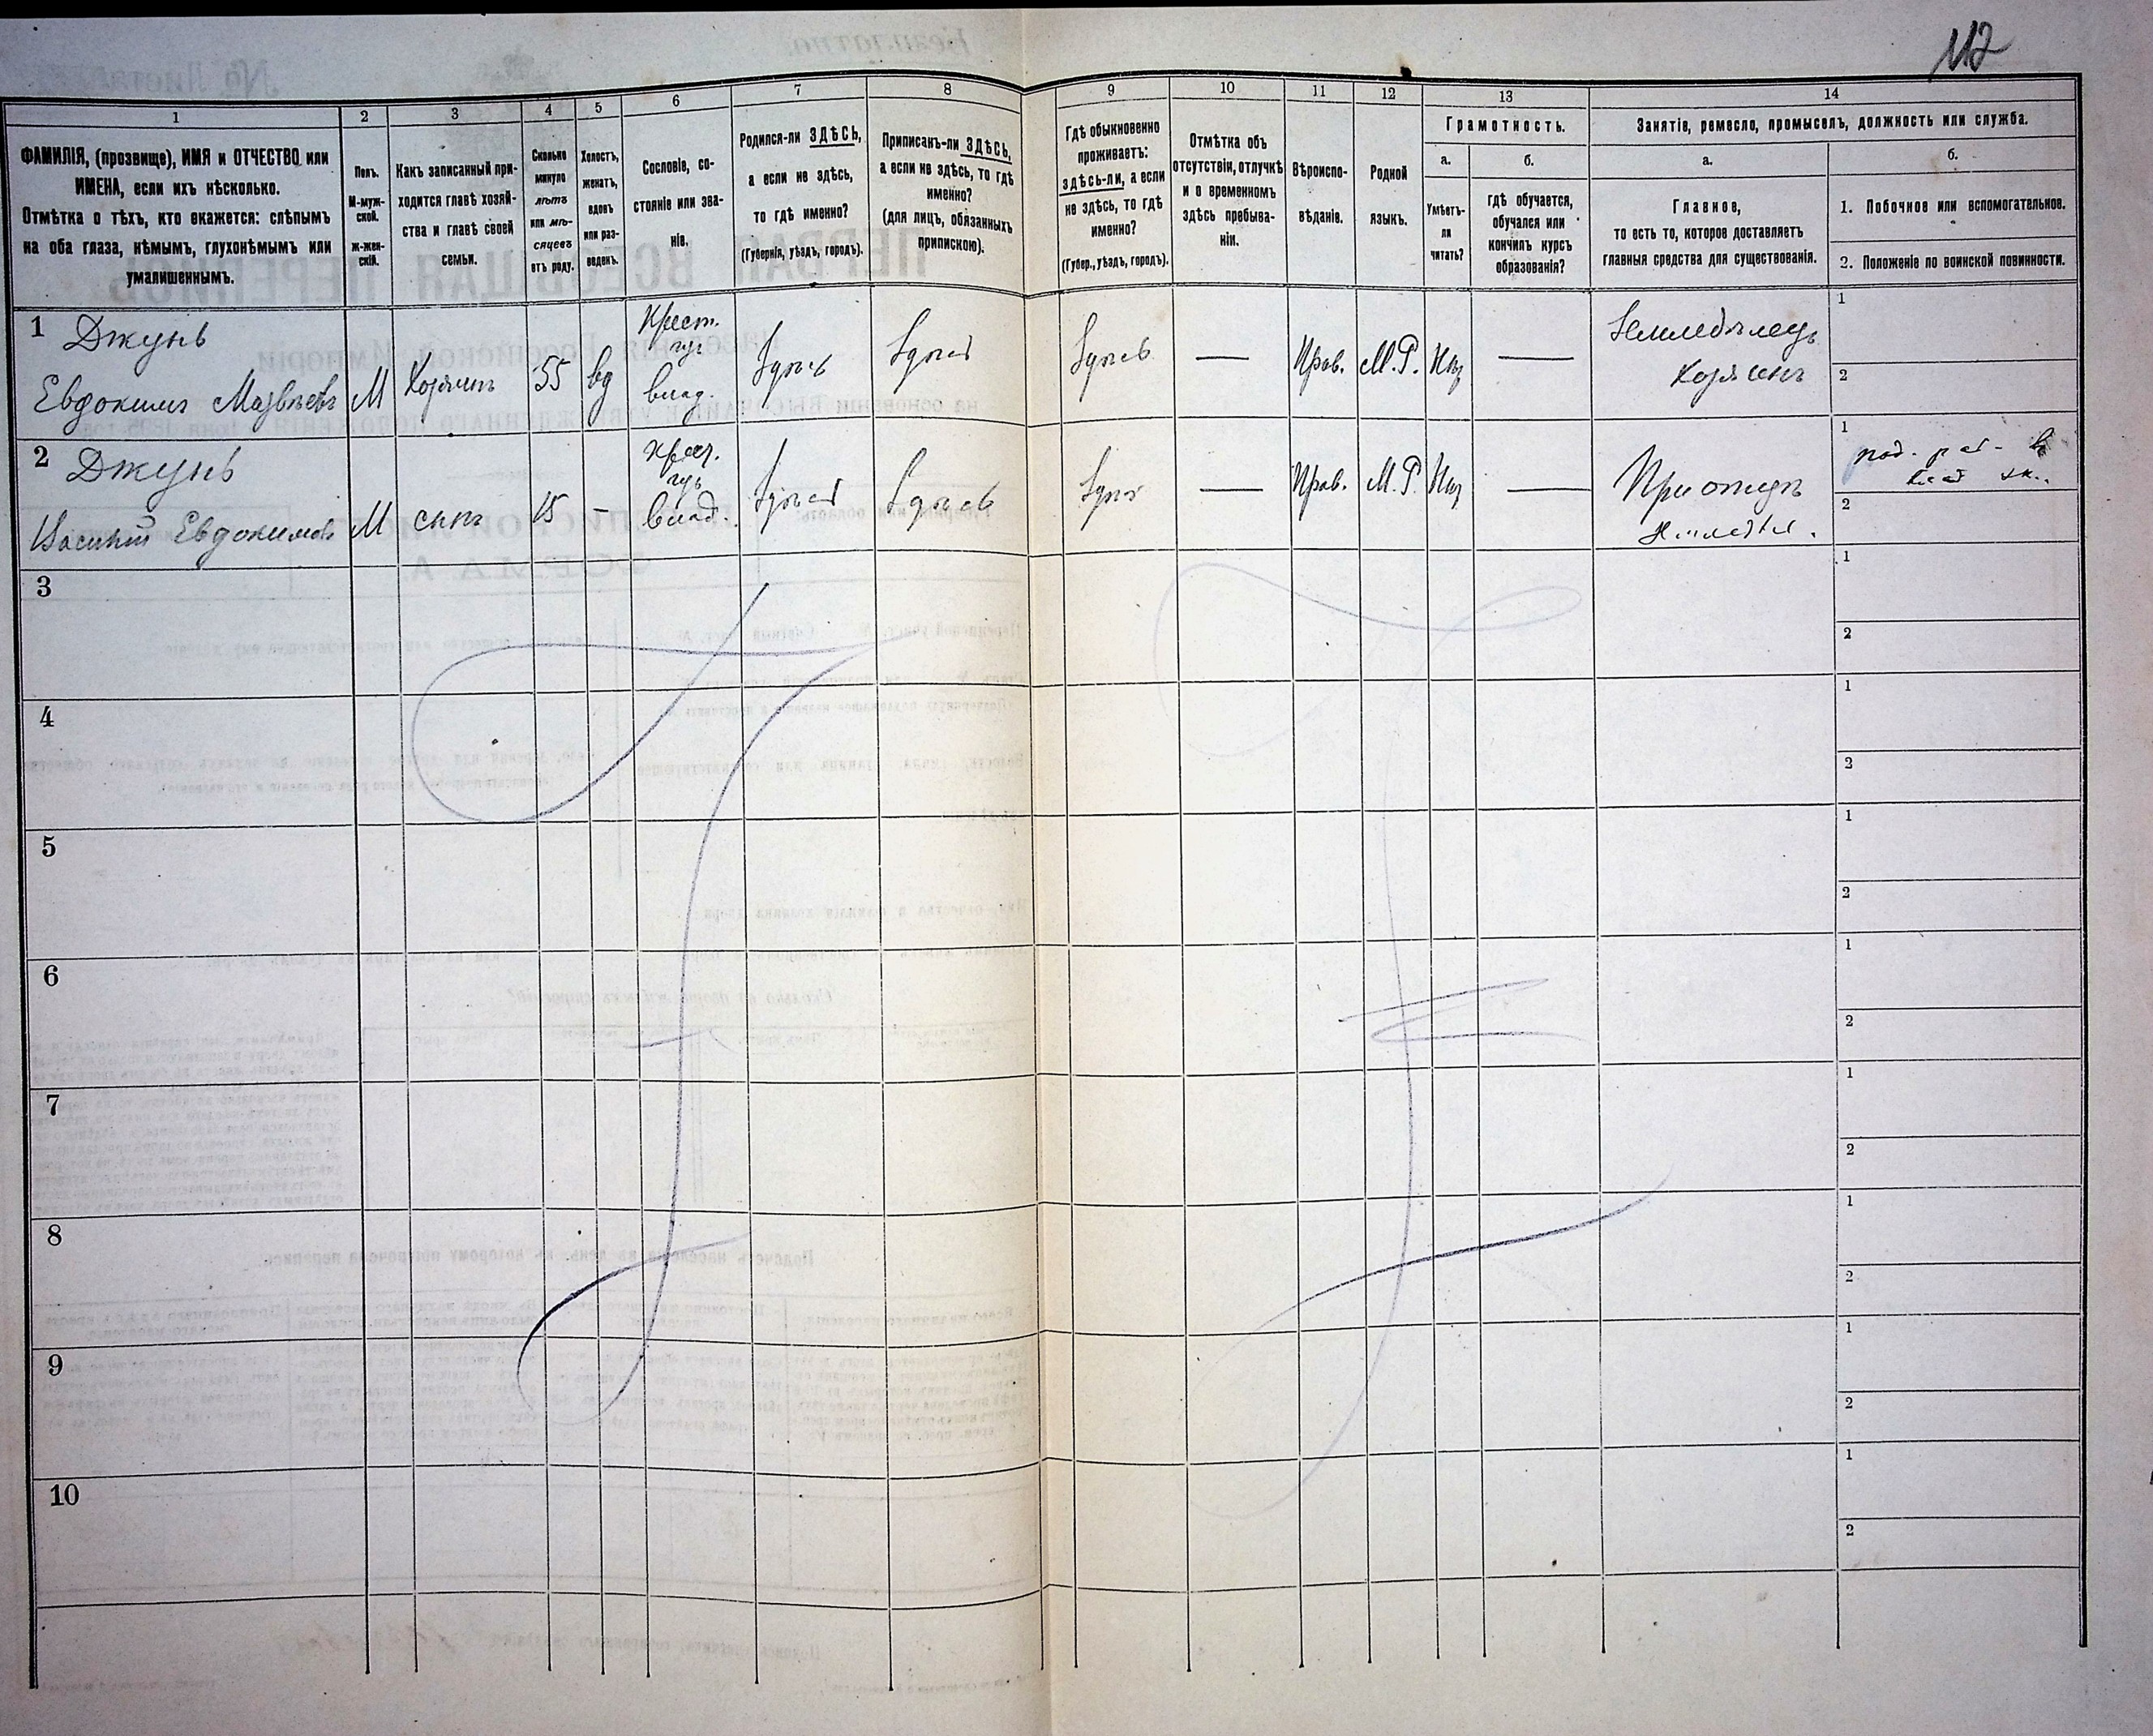 112
1
2
3
4
5
6
7
8
9
10
11
12
13
14
ФАМИЛІЯ, (прозвище), ИМЯ и ОТЧЕСТВО или
ИМЕНА, если ихъ нѣсколько.
Отмѣтка о тѣхъ, кто окажется: слѣпымъ
на оба глаза, нѣмымъ, глухонѣмымъ или
умалишеннымъ.
Полъ.
М-муж-
ской.
ж-жен-
скій.
Какъ записанный при-
ходится главѣ хозяй-
ства и главѣ своей
семьи.
Сколько
минуло
лѣтъ
или мѣ-
сяцевъ
отъ роду.
Холостъ,
женатъ,
вдовъ
или раз-
веденъ.
Сословіе, со-
стояніе или зва-
ніе.
Родился-ли ЗДѢСЬ,
а если не здѣсь,
то гдѣ именно?
(Губернія, уѣздъ, городъ).
Приписанъ-ли ЗДѢСЬ,
а если не здѣсь, то гдѣ
именно?
(для лицъ, обязанныхъ
припискою).
Гдѣ обыкновенно
проживаетъ:
здѣсь-ли, а если
не здѣсь, то гдѣ
именно?
(Губер., уѣздъ, городъ).
Отмѣтка объ
отсутствіи, отлучкѣ
и о временномъ
здѣсь пребыва-
ніи.
Вѣроиспо-
вѣданіе.
Родной
языкъ.
Грамотность.
а.
б.
Умѣетъ-
ли
читать?
гдѣ обучается,
обучался или
кончилъ курсъ
образованія?
Занятіе, ремесло, промыселъ, должность или служба.
а.
б.
Главное,
то есть то, которое доставляетъ
главныя средства для существованія.
1. Побочное или вспомогательное.
2. Положеніе по воинской повинности.
1
Джунь
Евдокимъ Матвѣевъ
М
Хозяинъ
55
вд
Крест.
влад.
Здѣсь
Здѣсь
Здѣсь
—
Прав.
М.Р.
Нѣт
—
Земледѣлецъ
Хозяинъ
1
2
2
Джунь
Василій Евдокимовъ
М
сынъ
15
–
влад.
Здѣсь
Здѣсь
Здѣсь
—
Прав.
М.Р.
Нѣт
—
При отцѣ
1
2
3
1
2
4
1
2
5
1
2
6
1
2
7
1
2
8
1
2
9
1
2
10
1
2